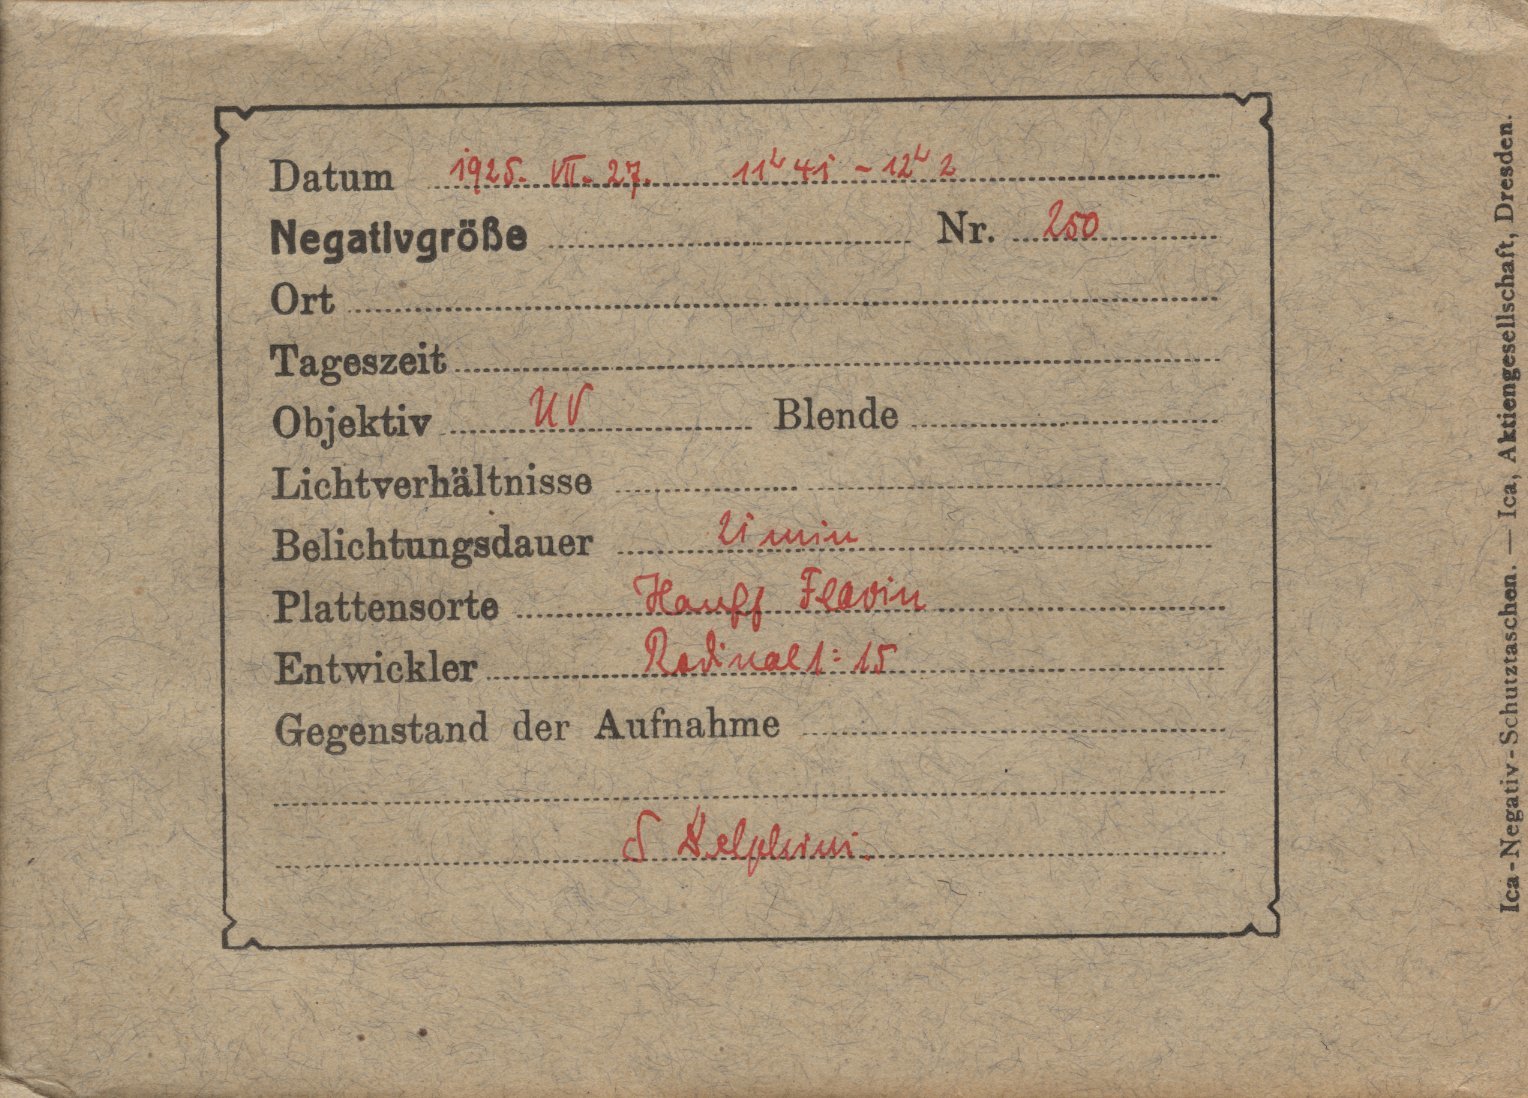 Datum 1925. VII. 27. 11h 41 - 12h 2
Negativgröße Nr. 250
Ort
Tageszeit
Objektiv UV Blende
Lichtverhältnisse
Belichtungsdauer 21 min
Plattensorte Hauff Flavin
Entwickler Rodinal 1:15
Gegenstand der Aufnahme
δ Delphini.
Ica-Negativ-Schutztaschen. — Ica, Aktiengesellschaft, Dresden.